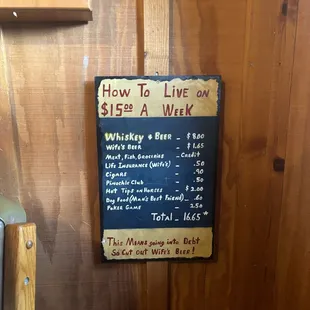 How To Live on
$15.00 A Week
Whiskey & Beer – $8.00
Wife's Beer – $1.65
Meat, Fish, Groceries – Credit
Life Insurance (Wife's) – .50
Cigars – .90
Pinochle Club – .50
Hot Tips on Horses – $2.00
Dog Food (Man's Best Friend) – .60
Poker Game – 2.50
Total – 16.65 *
This Means going into Debt
So Cut Out Wife's Beer!